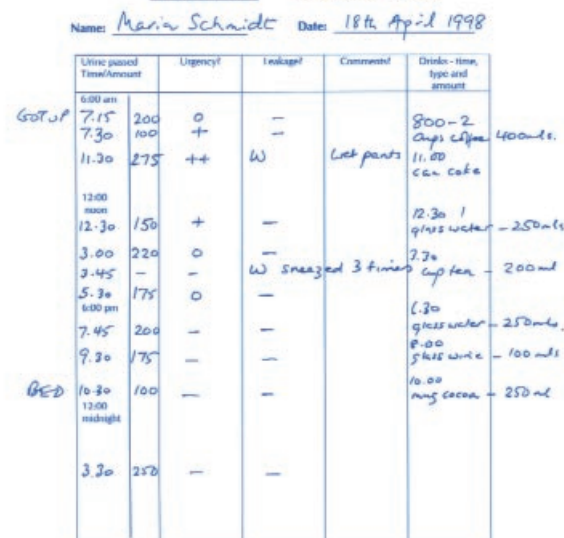 Name: Maria Schmidt Date: 18th April 1998
Urine passed Time/Amount Urgency? Leakage? Comments? Drinks - time, type and amount
6:00 am
GOT UP 7.15 200 o — 800-2
7.30 100 + — cups coffee 400mls.
11.30 275 ++ W Wet pants 11.00
can coke
12:00 noon
12.30 150 + — 12.30 1
glass water - 250mls
3.00 220 o — 3.30
3.45 - - W sneezed 3 times cup tea - 200ml
5.30 175 o —
6:00 pm 6.30
7.45 200 — — glass water - 250mls.
8.00
9.30 175 — — glass wine - 100mls
BED 10.30 100 — — 10.00
12:00 midnight mug cocoa - 250ml
3.30 250 — —